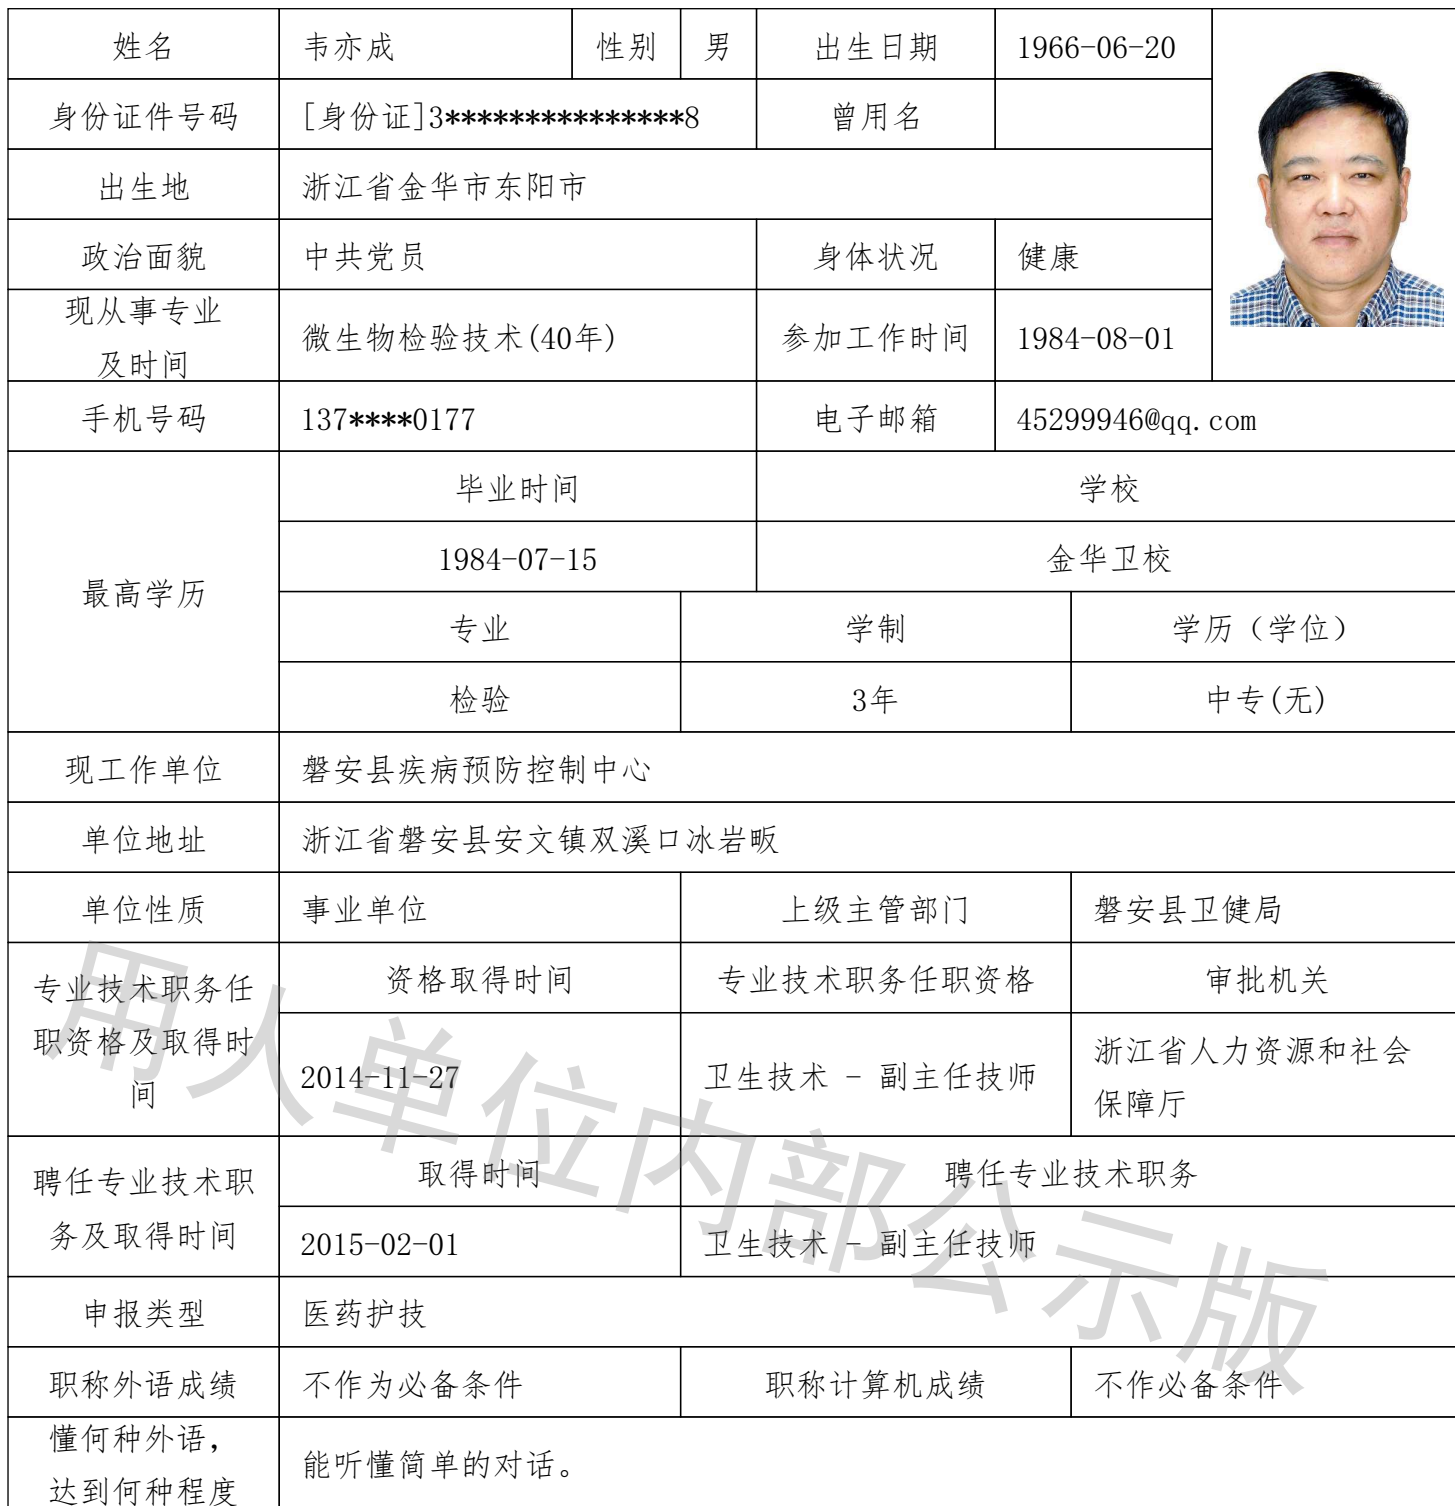 姓名 韦亦成 性别 男 出生日期 1966-06-20
身份证件号码 [身份证]3***************8 曾用名
出生地 浙江省金华市东阳市
政治面貌 中共党员 身体状况 健康
现从事专业
及时间
微生物检验技术(40年) 参加工作时间 1984-08-01
手机号码 137****0177 电子邮箱 45299946@qq.com
最高学历
毕业时间 学校
1984-07-15 金华卫校
专业 学制 学历（学位）
检验 3年 中专(无)
现工作单位 磐安县疾病预防控制中心
单位地址 浙江省磐安县安文镇双溪口冰岩畈
单位性质 事业单位 上级主管部门 磐安县卫健局
专业技术职务任
职资格及取得时
间
资格取得时间 专业技术职务任职资格 审批机关
2014-11-27 卫生技术 - 副主任技师
浙江省人力资源和社会
保障厅
聘任专业技术职
务及取得时间
取得时间 聘任专业技术职务
2015-02-01 卫生技术 - 副主任技师
申报类型 医药护技
职称外语成绩 不作为必备条件 职称计算机成绩 不作必备条件
懂何种外语，
达到何种程度
能听懂简单的对话。
用人单位内部公示版